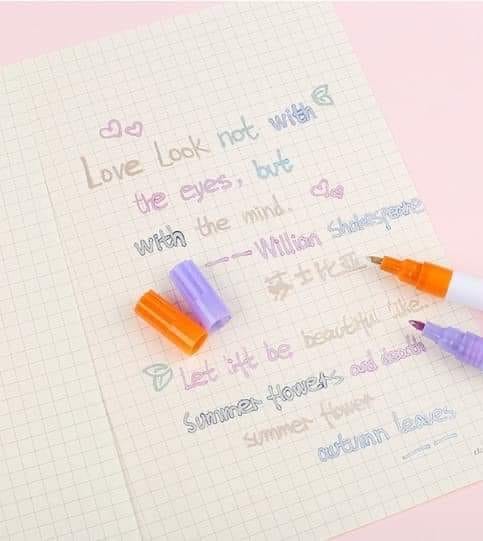 Love Look not with
the eyes, but
with the mind.
——Willian Shakespeare
莎士比亚
Let ift be beautiful like
Summer flowers and death
summer flower
autumn leaves